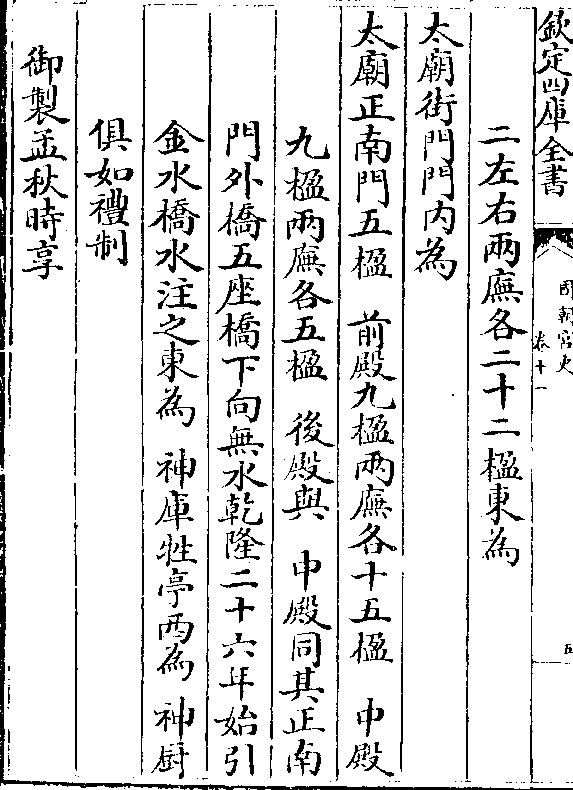 欽定四庫全書
國朝宮史
卷十一
五
二左右兩廡各二十二楹東為
太廟街門門内為
太廟正南門五楹 前殿九楹兩廡各十五楹 中殿
九楹兩廡各五楹 後殿與 中殿同其正南
門外橋五座橋下向無水乾隆二十六年始引
金水橋水注之東為 神庫牲亭西為 神厨
俱如禮制
御製孟秋時享